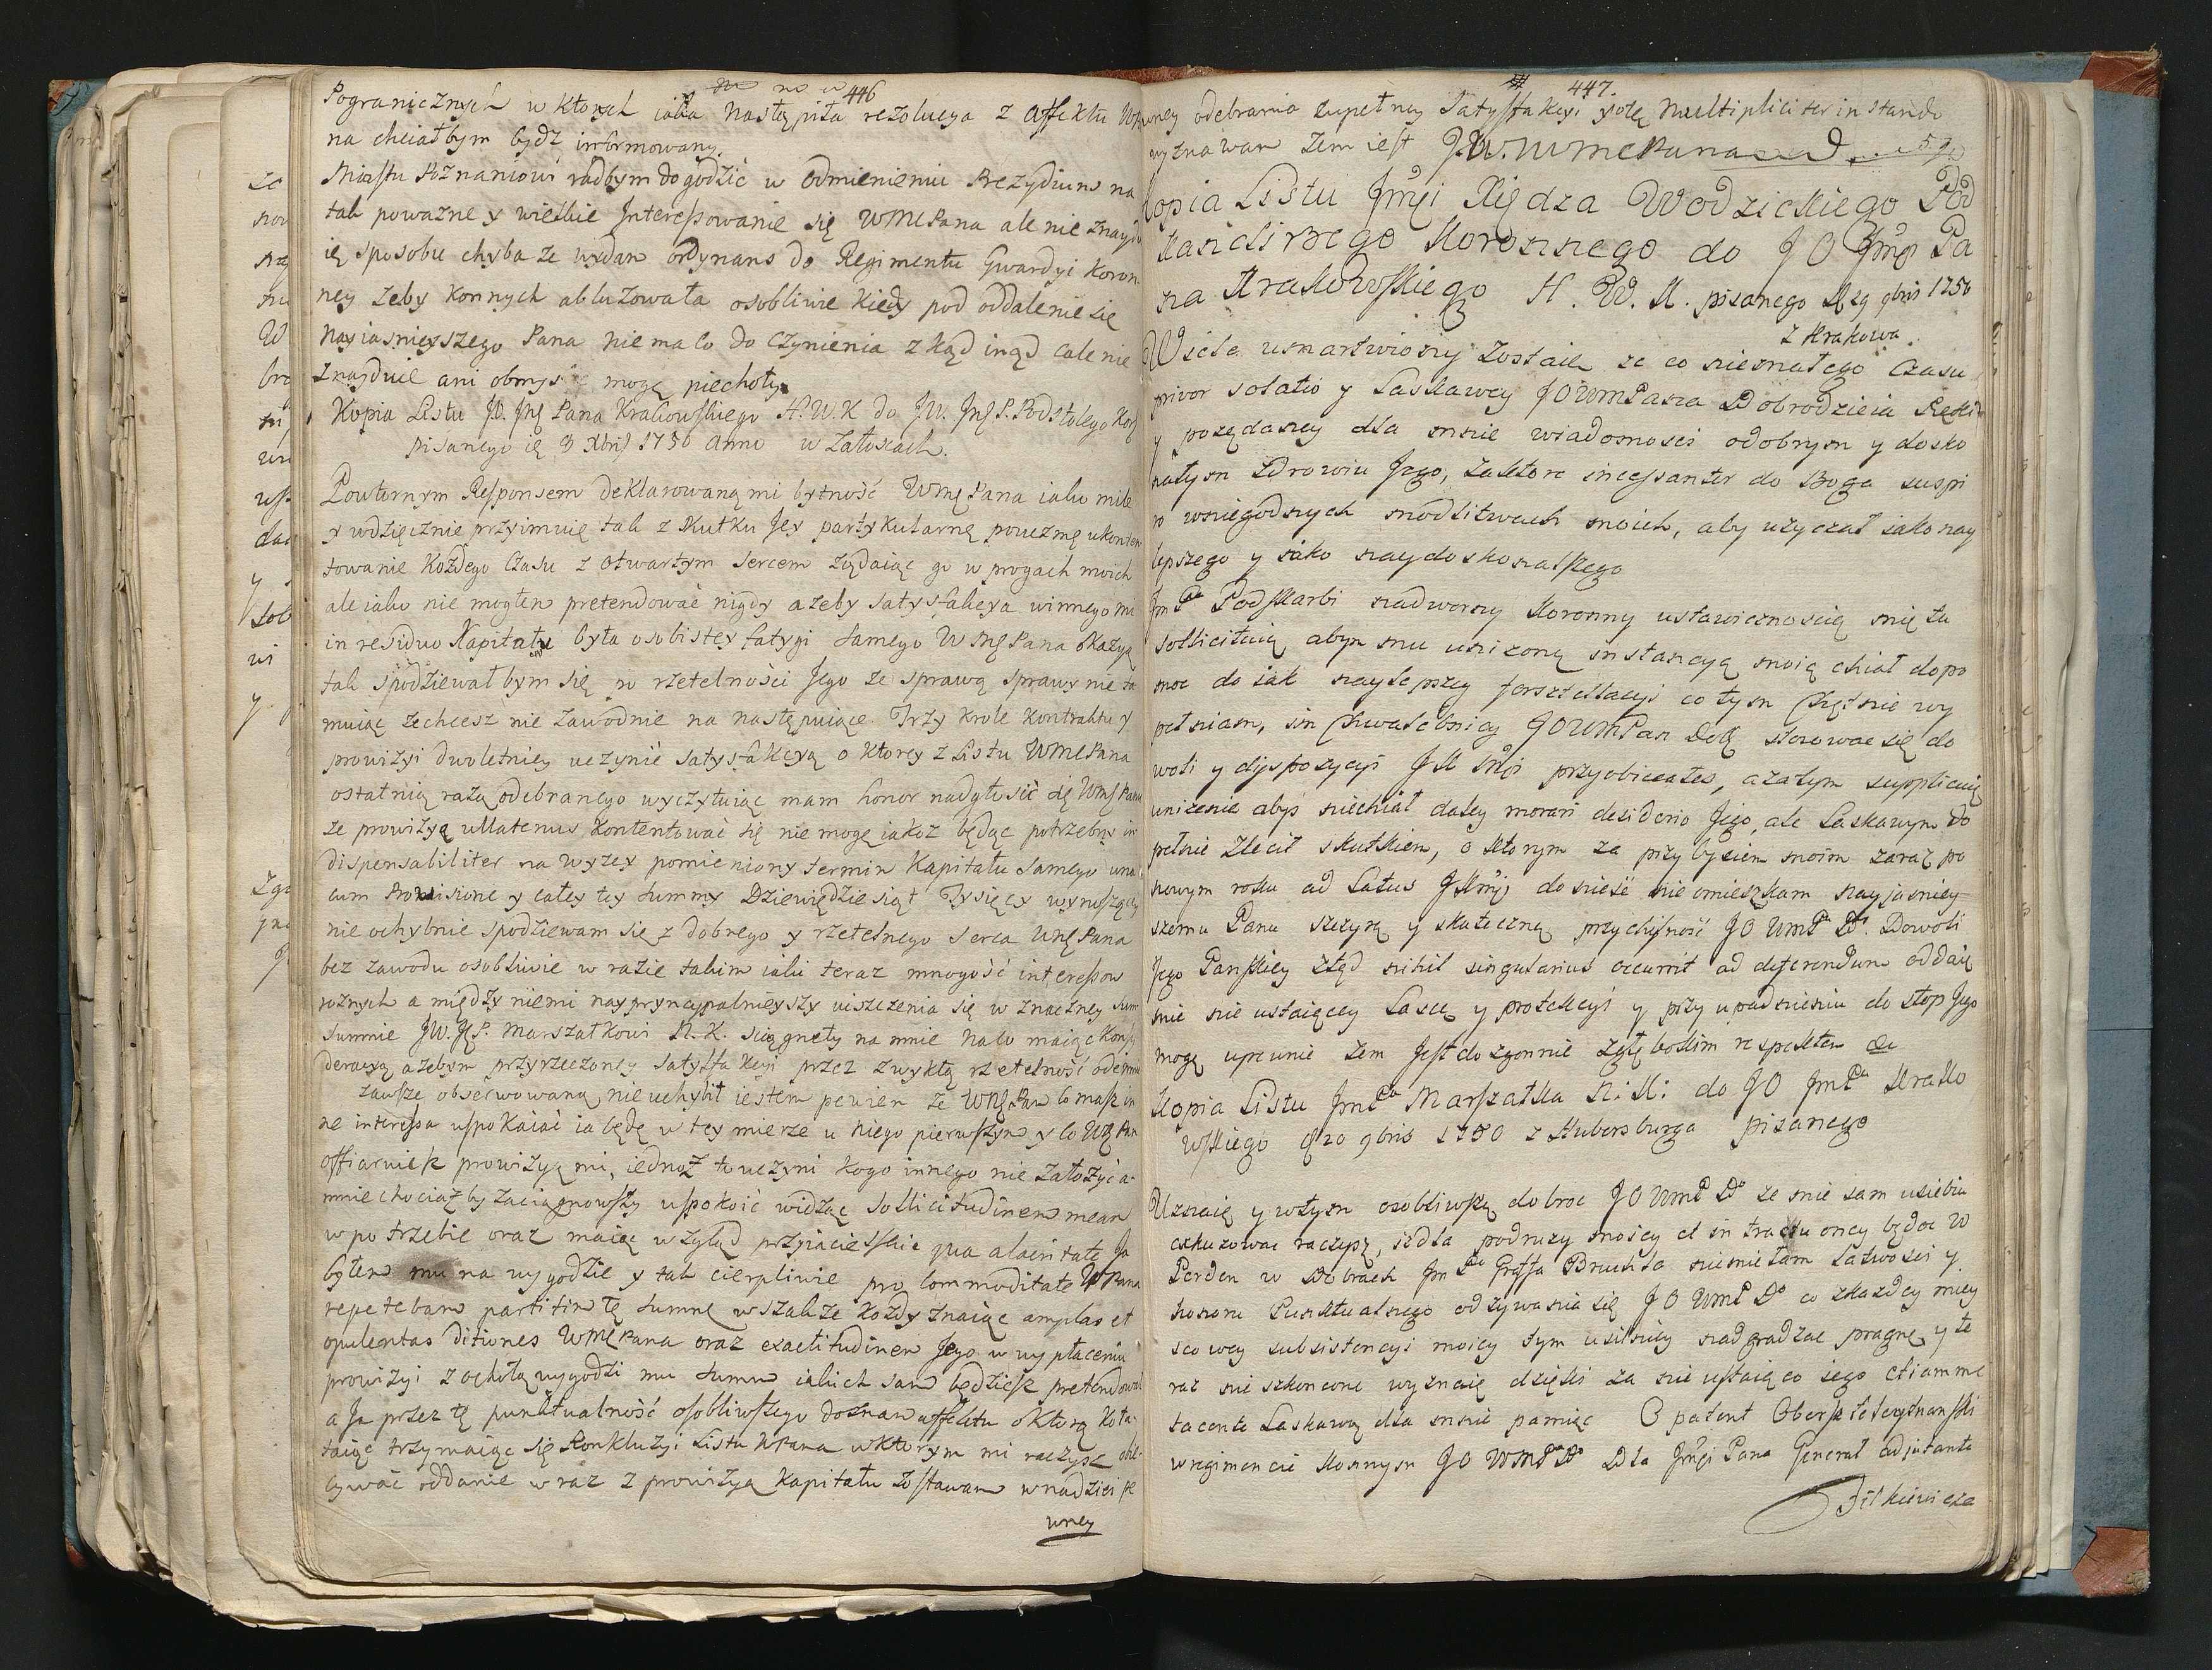 446
Pogranicznych w ktorych iaka nastąpiła rezolucya z Affektu
na chciałbym bydz informowany.
Miastu Poznaniowi radbym dogodzić w odmienieniu Prezydium na
tak poważne y wielkie Interessowanie się WMCPana ale nie znayd
ię sposobu chyba ze wydam ordynans do Regimentu Gwardyi Koron
ney zeby konnych abluzowała osobliwie kiedy pod oddalenie się
Nayiasnieyszego Pana nie ma co do czynienia z kąd inąd cale nie
znayduię ani mogę piechoty
Kopia Listu J.O. Jmę Pana Krakowskiego H.W.K do J.W. Jmę P. Podstolego Kor
pisanego 1750 Anno w Załoscach.
Powtornym Responsem deklarowaną mi bytność Wmę Pana iako mile
y wdzięcznie przyimuię tak z skutku Jey partykularne powezmę ukonten
towanie Kozdego Czasu z otwartym sercem ządaiąc go w progach moich
ale iako nie mogłem pretendować nigdy azeby satysfakcya winnego mi
in residuo Kapitału była osobistey fatygi samego WmęPana okazyą
tak spodziewałbym się po rzetelności Jego ze sprawą sprawy nie ta
muiąc zechcesz nie zawodnie na następuiące Trzy Krole Kontraktu y
prowizyi dwuletniey uczynić satysfakcyą o ktorey z Listu WMCPana
ostatnią razą odebranego wyczytuiąc mam honor nadgłosić się Wmę Pana
ze prowizyą ullatenus kontentować się nie mogę iakoz będąc potrzebny in
dispensabiliter na wyzey pomieniony termin Kapitału samego una
cum Provisione y całey tey summy Dziewiędziesiąt Tysięcy wynoszącey
nie ochybnie spodziewam się z dobrego y rzetelnego serca Wmę Pana
bez zawodu osobliwie w razie takim iaki teraz mnogość interessow
roznych a między niemi nayprincypalnieyszy uiszczenia się w znaczney sum
summie JW. Ję P. Marszałkowi N.K. sciągneły na mnie mało maiąc Konsy
deracyą azebym przyrzeczoney satysfakcyi przez zwykłą rzetelność odemnie
zawsze obserwowaną nie uchybił iestem pewien ze WMęPan co masz in
ne interessa uspokaiać ia będę w tey mierze u niego pierwszym y co WęPan
offiaruiesz prowizyą mi, iednoż to uczyni kogo innego nie załozyć a
mnie chociaz by zaciągnowszy uspokoić widząc sollicitudinem meam
w potrzebie oraz maiąc wzgląd przyiacielskie qua alacritate Ja
byłem mu na wygodzie y tak cierpliwie pro commoditate WPana
repetebam partitim tę summę wszakze kozdy znaiąc amplas et
opulentas ditiones WMęPana oraz exactitudinem Jego w wypłaceniu
prowizyi z ochotą wygodzi mu summ iakich sam będziesz pretendował
a Ja przez tę punktualność osobliwszego doznam affektu o ktorą koła
taiąc trzymaiąc się Konkluzyi Listu WPana w ktorym mi raczysz obie
cywać oddanie wraz z prowizyą Kapitału zostawam w nadziei pe
wney
447.
wney odebrania zupełney Satysfakcyi yołę multipliciter instando
wyznawam Zem iest J.W. WMCPana
Kopia Listu Jmći Xiędza Wodzickiego Pod
kanclirzego Koronnego do JO Jmći Pa
na Krakowskiego H. W. K. pisanego 29 9bris 1750
z Krakowa
Wiele umartwiony zostaię ze co niemałego Czasu
privor solatio y Łaskawey JOWMPana Dobrodzieia Ręki
y pożądaney dla mnie wiadomości odobrym y dosko
nałym zdrowiu Jego, zaktore incessanter do Boga suspi
ro w niegodnych modlitwach moich, aby uzyczał iako nay
lepszego y iako naydoskonalszego
Jm Pa Podskarbi nadworny Koronny ustawicznoscią mię tu
sollicituię abym mu unizoną instancyą moią chiał dopo
moc do iak naylepszey co tym chętnie wy
pełniam, im chwalebniey JOWMPan Dobr stosowac się do
woli y dyspozycyi JK Mći przyobiecałes, azatym supplicuię
unizenie abyś niechiał daley moram desiderio Jego, ale Łaskawym do
pełnie zlecił skutkiem, o ktorym za przybyciem moim zaraz po
nowym roku ad Latus JKMći donieść nie omieszkam nayjasniey
szemu Panu szczyrą y skuteczną przychylność JO WmP D. Dowoli
Jego Panskiey ztąd nihil singularius occurrit ad deferendum oddaię
mie nie ustaiącey Łasce y protekcyi y przy upadnieniu do stop Jego
mogę upewnie zem Jest dozgonnie zgłębokim respektem
Kopia Listu JmPa Marszałka N: K: do JO JmPa Krako
wskiego 20 9bris 1750 z Hubersburga pisanego
Uznaię y wtym osobliwszą dobroc JO WmP Do ze mie sam usiebie
exkuzowac raczysz, iż dla podruzy moiey et in tractu oney będąc W
Perden w Dobrach Jm Pa Graffa Bruchla niemiałam Łatwosci y
honoru Punktualnego odzywania się JO WmP Do co zkazdey miey
scowey subsistencyi moiey tym usilniey nadgradzac pragnę, y te
raz nie skoncone wyznaię dzięki za nie ustaiąco iego etiam me
tacente Łaskawą dla mnie pamięc O patent
wregimencie Konnym JO WMPaDo Dla Jmći Pana Generał Adjutanta